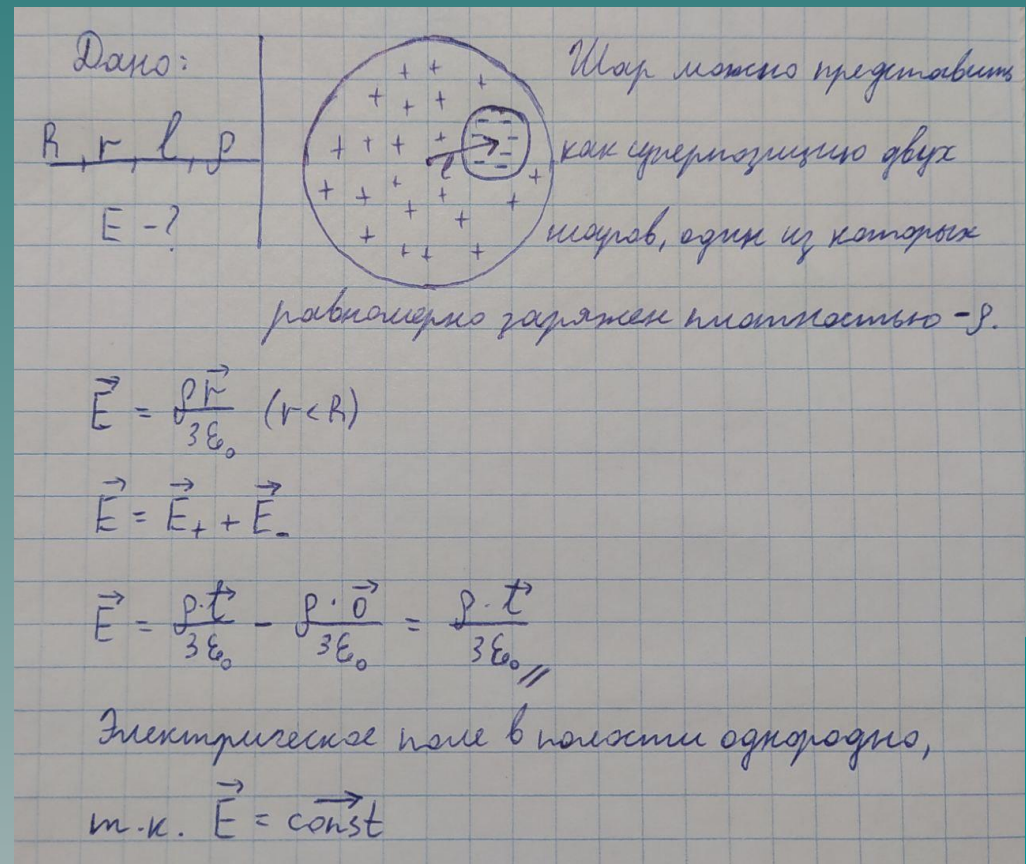 Дано:
R, r, l, ρ
E - ?
l
Шар можно представить
как суперпозицию двух
шаров, один из которых
равномерно заряжен плотностью -ρ.
E⃗ = ρr⃗ / 3ε₀ (r < R)
E⃗ = E⃗₊ + E⃗₋
E⃗ = ρ·l⃗ / 3ε₀ - ρ·0⃗ / 3ε₀ = ρ·l⃗ / 3ε₀ //
Электрическое поле в полости однородно,
т.к. E⃗ = const⃗